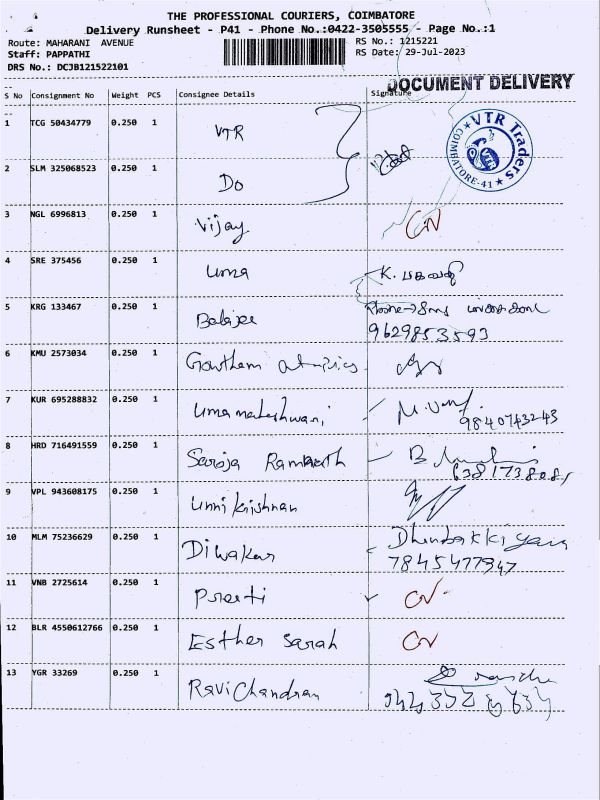 THE PROFESSIONAL COURIERS, COIMBATORE
Delivery Runsheet - P41 - Phone No.:0422-3505555 - Page No.:1
Route: MAHARANI AVENUE RS No.: 1215221
Staff: PAPPATHI RS Date: 29-Jul-2023
DRS No.: DCJB121522101
DOCUMENT DELIVERY
S No Consignment No Weight PCS Consignee Details Signature
1 TCG 50434779 0.250 1 VTR
VTR Traders
COIMBATORE-41
2 SLM 325068523 0.250 1 Do
3 NGL 6996813 0.250 1 Vijay
4 SRE 375456 0.250 1 Uma K.
5 KRG 133467 0.250 1 Balajee
9629853593
6 KMU 2573034 0.250 1 Gowtham
7 KUR 695288832 0.250 1 Umamaheshwari
9840743243
8 HRD 716491559 0.250 1 Saroja B
9 VPL 943608175 0.250 1 Unnikrishnan
10 MLM 75236629 0.250 1 Diwakar
7845477947
11 VNB 2725614 0.250 1 Preeti
12 BLR 4550612766 0.250 1 Esther Sarah
13 YGR 33269 0.250 1 RaviChandran